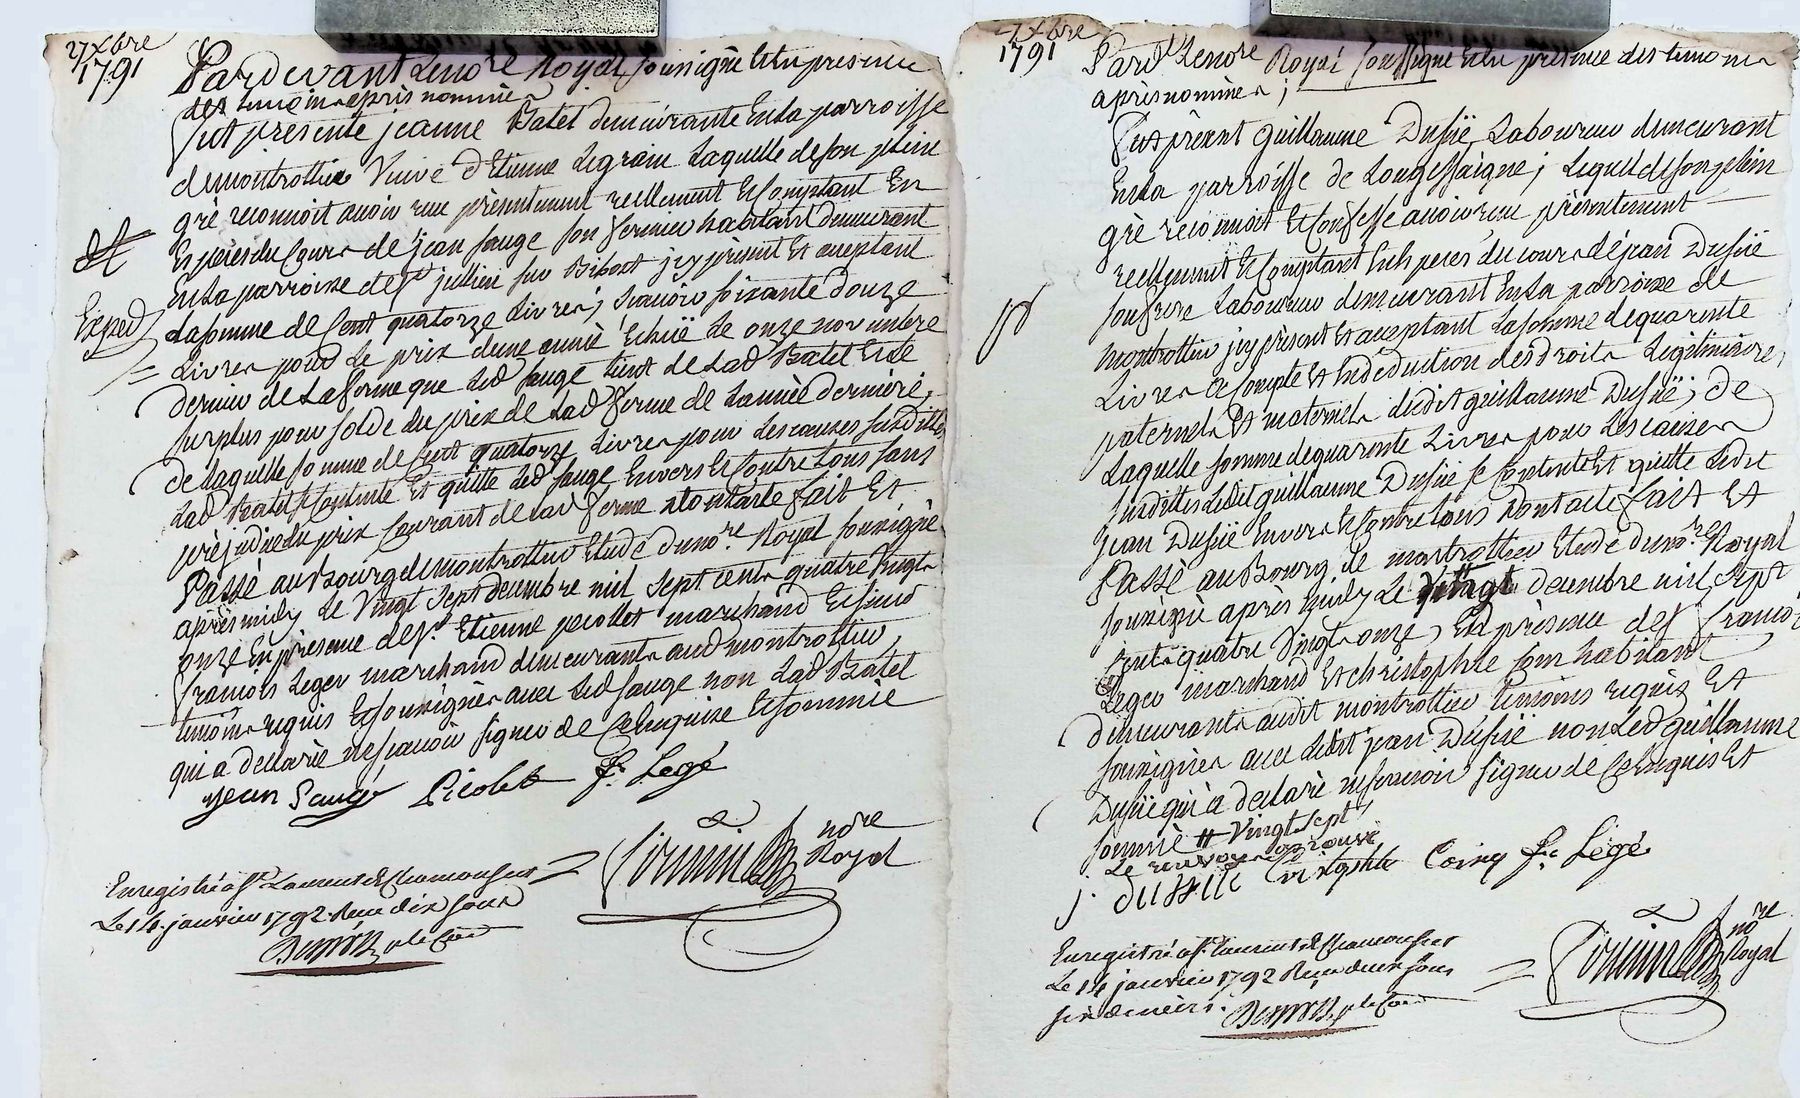 27 Xbre
1791
Pardevant Lenore Royal soussigné Et En presence
des temoins après nommés
fut présente jeanne Batet demeurante En la parroisse
de montrottier Veuve d'Etienne Legrain Laquelle de son plein
gré reconnoit avoir reçue présentement reellement Et Comptant En
Espèces du Cours de jean Sauge son fermier habitant demeurant
En la parroisse de St jullien sur Bibost icy présent Et acceptant
La somme de Cent quatorze Livres, Scavoir soixante douze
Exped
Livres pour Le prix d'une année Echüe Le onze novembre
dernier de La ferme que Led Sauge tient de Lad Batet Et Le
surplus pour solde du prix de Lad ferme de L'année dernière,
de Laquelle somme de Cent quatorze Livres pour Les causes susdittes
Lad Batet se Contente Et quitte Led Sauge Envers Et Contre tous sans
préjudice du prix Courant de Lad ferme dont acte fait Et
Passé au Bourg de montrottier Etude du nore Royal soussigné
après midy Le Vingt sept decembre mil sept cents quatre Vingts
onze En présence de Sr Etienne picollet marchand Et sieur
françois Leger marchand demeurants aud montrottier,
temoins requis Et soussignés avec Led Sauge non Lad Batet
qui a declarée ne scavoir signer de Ce Enquise Et sommée
jean Sauge Picolet fs Legé
nore
Royal
Enregistré à St Laurent de Chamousset
Le 14 janvier 1792. Reçu dix sous
27 Xbre
1791
Pardt Lenore Royal soussigné Et En présence des temoins
après nommés;
fut présent Guillaume Dussüe Laboureur demeurant
En la parroisse de Longessaigne; Lequel de son plein
gré reconnoit Et Confesse avoir reçu présentement
reellement Et Comptant En Espèces du cours de jean Dussüe
son frère Laboureur demeurant En la parroisse de
montrottier icy présent Et acceptant La somme de quarante
Livres à Compte Et En deduction des droits Légitimaires,
paternels Et maternels dudit guillaume Dussüe; de
Laquelle somme de quarante Livres pour Les causes
susdittes Ledit guillaume Dussüe se Contente Et quitte Ledit
jean Dussüe Envers Et Contre tous dont acte fait Et
Passé au Bourg de montrottier Etude du nore Royal
soussigné après midy Le Vingt decembre mil sept
Cents quatre Vingts onze, En présence de Sr françois
Leger marchand Et christophle Coin habitant
demeurants audit montrottier temoins requis Et
soussignés avec Ledit jean Dussüe non Led guillaume
Dussüe qui a declaré ne scavoir signer de Ce Enquis Et
sommé # Vingt sept
Le renvoy approuvé
j. dussüe Coing fs Légé
nore
Royal
Enregistré à St Laurent de Chamousset
Le 14 janvier 1792 Reçu deux sous
six deniers.